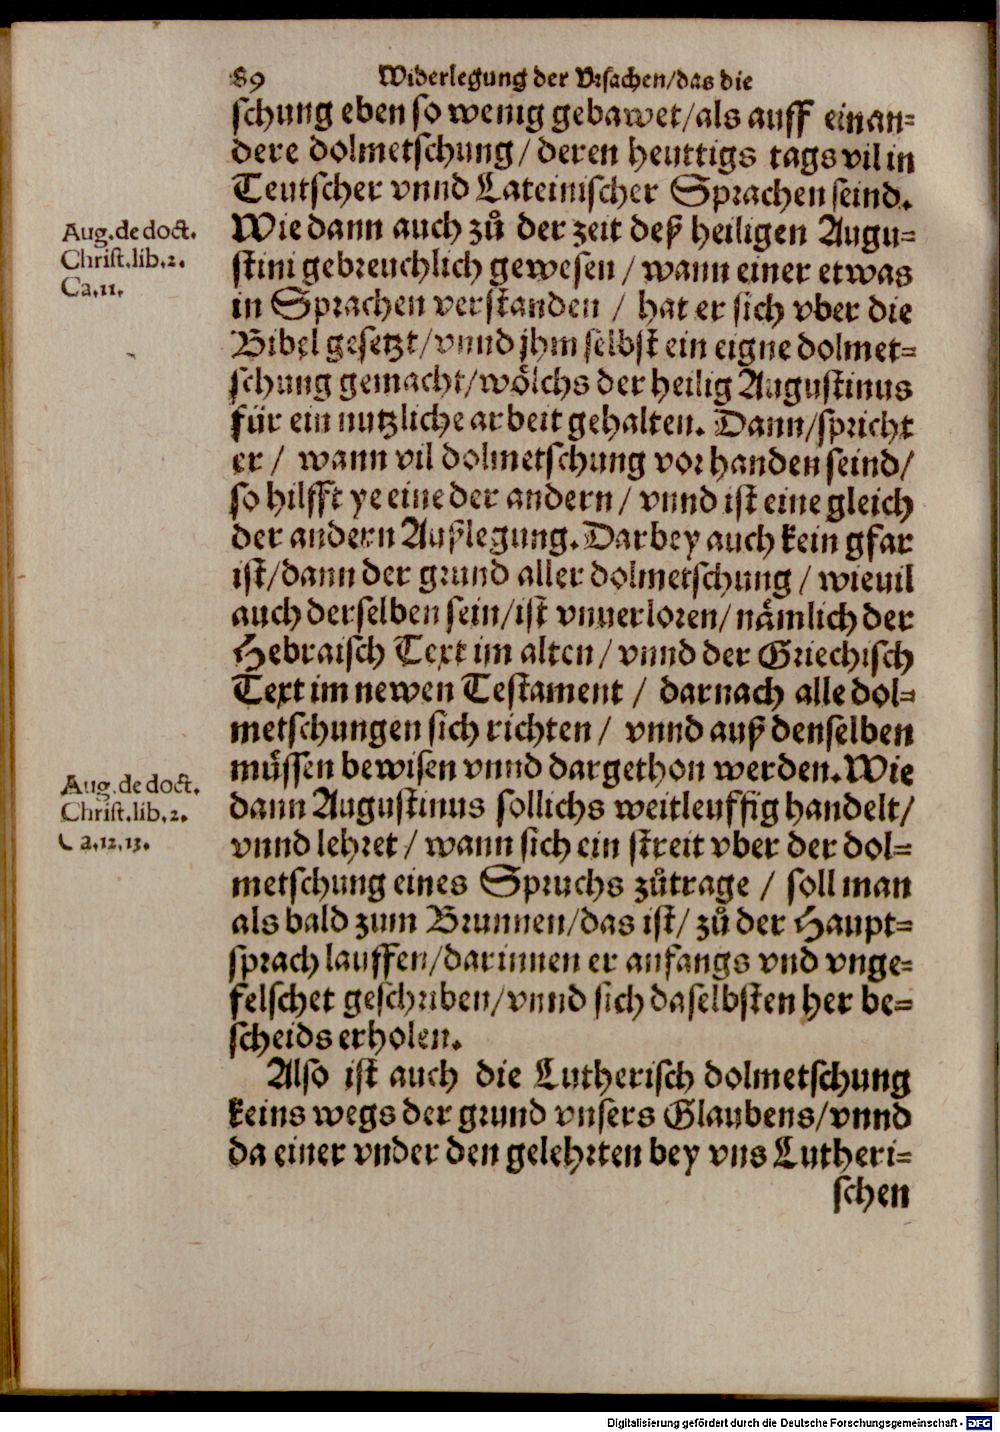 89 Widerlegung der Vrsachen/das die
schung eben so wenig gebawet/als auff ein an-
dere dolmetschung/deren heuttigs tags vil in
Teutscher vnnd Lateinischer Sprachen seind.
Wie dann auch zů der zeit deß heiligen Augu-
stini gebreuchlich gewesen/wann einer etwas
in Sprachen verstanden/hat er sich vber die
Bibel gesetzt/vnnd jhm selbst ein eigne dolmet-
schung gemacht/wölchs der heilig Augustinus
für ein nutzliche arbeit gehalten. Dann/spricht
er/wann vil dolmetschung vorhanden seind/
so hilfft ye eine der andern/vnnd ist eine gleich
der andern Außlegung. Darbey auch kein gfar
ist/dann der grund aller dolmetschung/wieuil
auch derselben sein/ist vnuerloren/nämlich der
Hebraisch Text im alten/vnnd der Griechisch
Text im newen Testament/darnach alle dol-
metschungen sich richten/vnnd auß denselben
müssen bewisen vnnd dargethon werden. Wie
dann Augustinus sollichs weitleuffig handelt/
vnnd lehret/wann sich ein streit vber der dol-
metschung eines Spruchs zůtrage/soll man
als bald zum Brunnen/das ist/zů der Haupt-
sprach lauffen/darinnen er anfangs vnd vnge-
felschet geschriben/vnnd sich daselbsten her be-
scheids erholen.
Also ist auch die Lutherisch dolmetschung
keins wegs der grund vnsers Glaubens/vnnd
da einer vnder den gelehrten bey vns Lutheri-
schen
Aug. de doct.
Christ. lib. 2.
Ca. 11.
Aug. de doct.
Christ. lib. 2.
Ca. 12. 13.
Digitalisierung gefördert durch die Deutsche Forschungsgemeinschaft - DFG